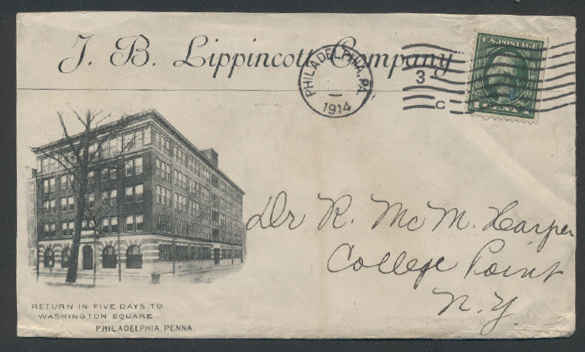 J. B. Lippincott Company
PHILADELPHIA, PA.
1914
3
C
U.S. POSTAGE
RETURN IN FIVE DAYS TO
WASHINGTON SQUARE
PHILADELPHIA, PENNA.
Dr R. McM. Harper
College Point
N.Y.